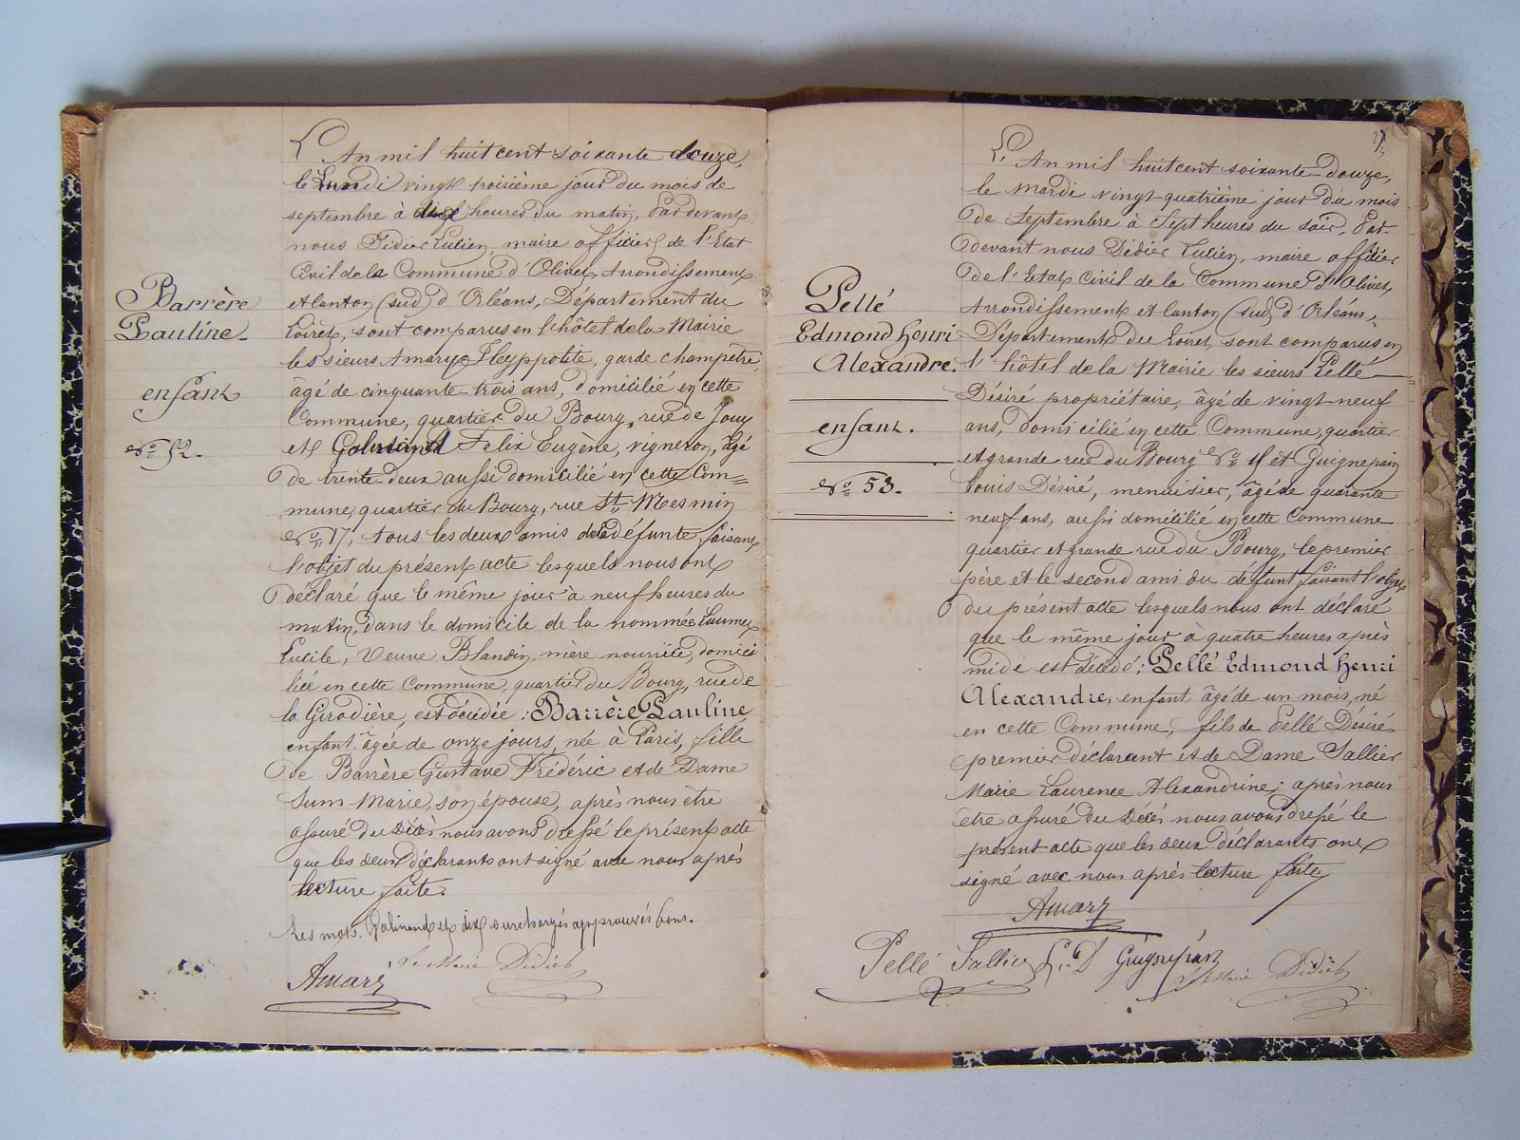 Barrère
Pauline.
enfant
N° 52.
L'An mil huit cent soixante douze,
le Lundi vingt troisième jour du mois de
septembre à dix heures du matin, Pardevant
nous Didier Lucien, maire officier de l'Etat
Civil de la Commune d'Olivet, Arrondissement
et Canton (sud) d'Orléans, Département du
Loiret, sont comparus en l'hôtel de la Mairie
les sieurs Amary Hyppolite, garde champêtre,
âgé de cinquante trois ans, domicilié en cette
Commune, quartier du Bourg, rue de Jouy
et Galinand Felix Eugène, vigneron, âgé
de trente deux aussi domicilié en cette Com=
mune, quartier du Bourg, rue St Mesmin
N° 17, tous les deux amis de la défunte faisant
l'objet du présent acte lesquels nous ont
déclaré que le même jour à neuf heures du
matin, dans le domicile de la nommée
Lucile, Veuve Blandin, mère nourrice, domici
liée en cette Commune, quartier du Bourg, rue de
la Girodière, est décédée : Barrère Pauline
enfant âgée de onze jours, née à Paris, fille
de Barrère Gustave Frédéric et de Dame
Marie, son épouse, après nous être
assuré du Décès nous avons dressé le présent acte
que les deux déclarants ont signé avec nous après
lecture faite.
Les mots. Galinand et dix surchargés approuvés bons.
Amary
Le Maire Didier
Pellé
Edmond Henri
Alexandre.
enfant.
N° 53.
L'An mil huit cent soixante douze,
le Mardi vingt-quatrième jour du mois
de Septembre à Sept heures du soir, Par-
devant nous Didier Lucien, maire officier
de l'Etat Civil de la Commune d'Olivet,
Arrondissement et Canton (sud) d'Orléans,
Département du Loiret, sont comparus en
l'hôtel de la Mairie les sieurs Pellé
Désiré propriétaire, âgé de vingt-neuf
ans, domicilié en cette Commune, quartier
et grande rue du Bourg N° et Guignepain
Louis Désiré, menuisier, âgé de quarante
neuf ans, aussi domicilié en cette Commune
quartier et grande rue du Bourg, le premier
père et le second ami du défunt faisant l'objet
du présent acte lesquels nous ont déclaré
que le même jour à quatre heures après
midi est décédé : Pellé Edmond Henri
Alexandre, enfant âgé de un mois, né
en cette Commune, fils de Pellé Désiré
premier déclarant et de Dame Sallier
Marie Laurence Alexandrine ; après nous
être assuré du Décès nous avons dressé le
présent acte que les deux déclarants ont
signé avec nous après lecture faite
Amary
Pellé Sallier L. D Guignepain
Le Maire Didier